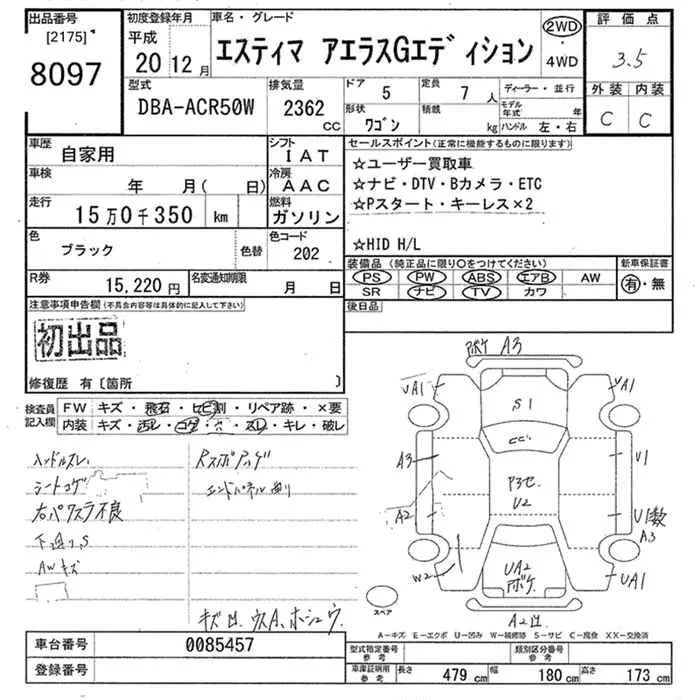 出品番号
[2175]
8097
初度登録年月
平成
20 12月
車名・グレード
エスティマ アエラスGエディション
2WD
・
4WD
評価点
3.5
外装 内装
C C
型式
DBA-ACR50W
排気量
2362
CC
ドア 5
定員 7 人
形状
ワゴン
積載
kg
ディーラー・並行
モデル年式 年
ハンドル 左・右
車歴
自家用
シフト
IAT
車検
年 月( 日)
冷房
AAC
走行
15万0千350 km
燃料
ガソリン
色
ブラック
色替
色コード
202
R券
15,220円
名変通知期限
月 日
セールスポイント(正常に機能するものに限ります)
☆ユーザー買取車
☆ナビ・DTV・Bカメラ・ETC
☆Pスタート・キーレス×2
☆HID H/L
装備品(純正品に限り○をつけてください)
PS PW ABS エアB AW
SR ナビ TV カワ
新車保証書
有・無
後日品
注意事項申告欄(不具合内容等は具体的に記入して下さい)
初出品
修復歴 有〔箇所 〕
検査員
記入欄
FW キズ・飛石・ヒビ割・リペア跡・×要
内装 キズ・汚レ・コゲ・穴・スレ・キレ・破レ
ハンドルスレ
シートコゲ
右パワスラ不良
下廻りS
AWキズ
キズ凹、ウスA、ホシュウ
ボケ A3
UA1
A1
S1
A3
U1
P3セ
U2
A2
U1数
A3
W2
UA2
ボケ
UA1
A2凹
スペア
A-キズ E-エクボ U-凹み W-補修跡 S-サビ C-腐食 XX-交換済
車台番号
0085457
登録番号
型式指定番号
参考
類別区分番号
参考
車庫証明用
参考
長さ 479 cm
幅 180 cm
高さ 173 cm